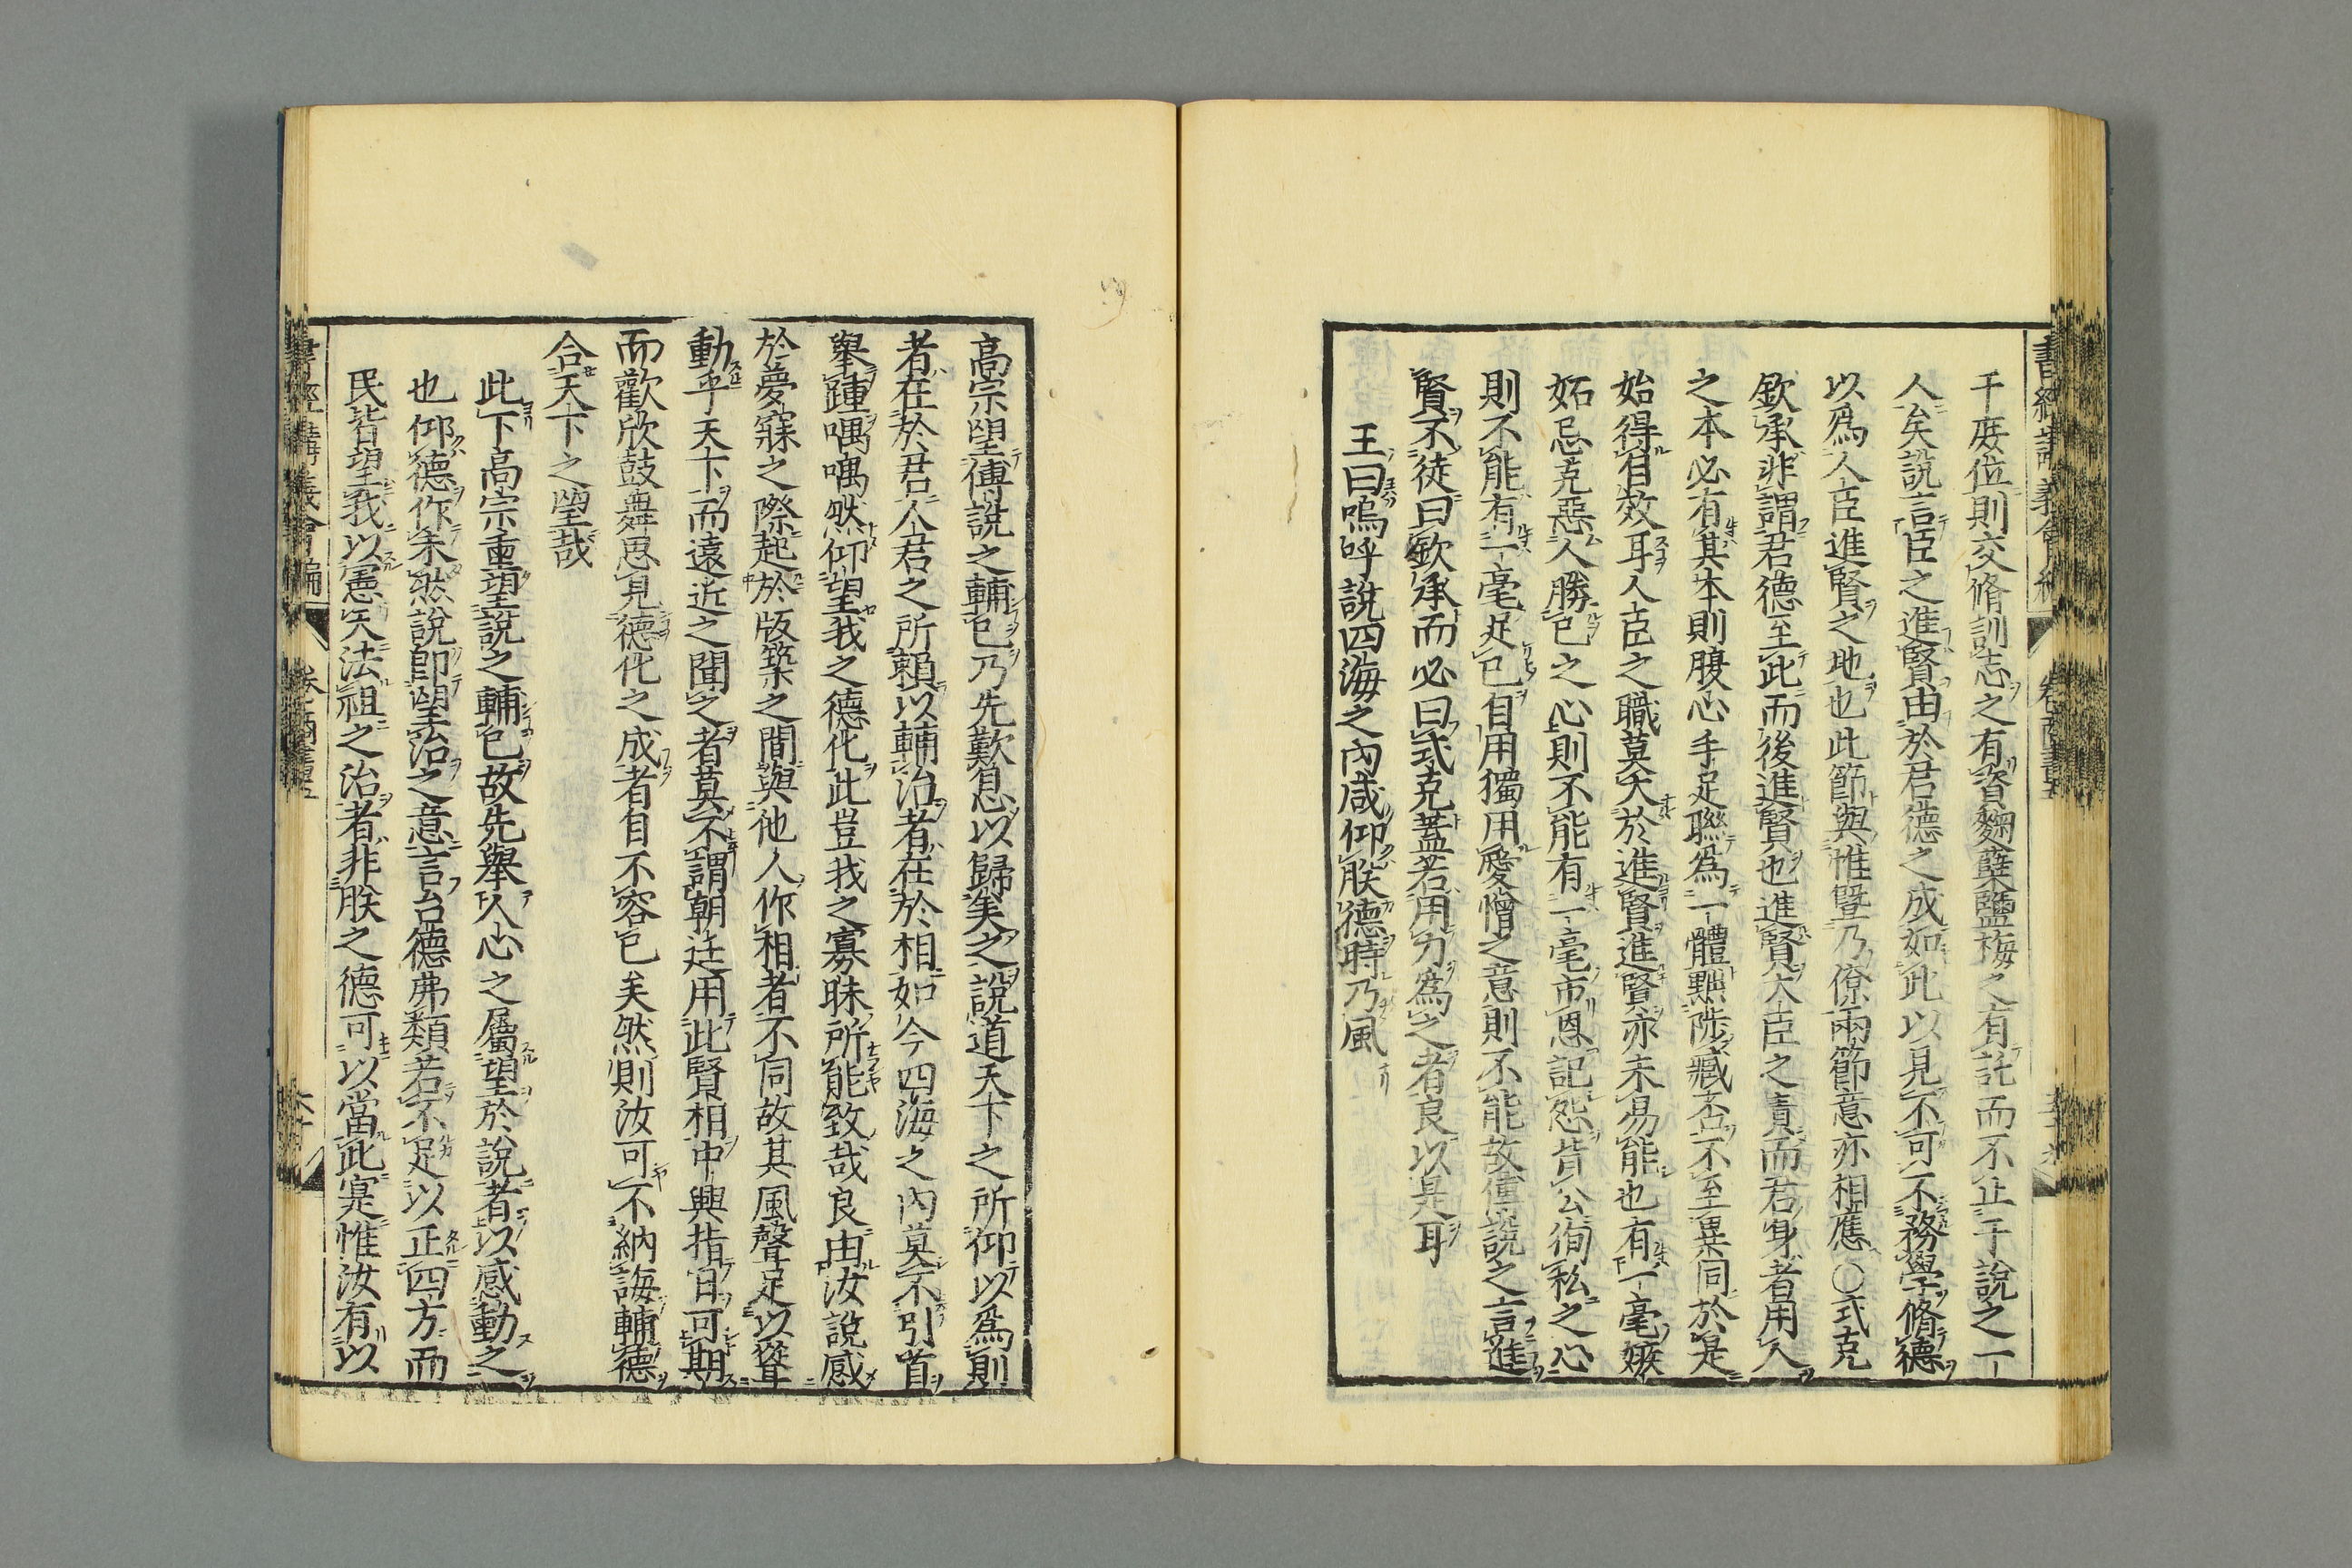 書經講義會編
卷
于庶位則交脩訓志之有資麴糵鹽梅之有託而不止于說之一
人矣說言臣之進賢由於君德之成如此以見不可不務學脩德
以爲人臣進賢之地也此節與惟曁乃僚兩節意亦相應○式克
欽承非謂君德至此而後進賢也進賢大臣之責而君身者用人
之本必有其本則腹心手足聯爲一體黜陟臧否不至異同於是
始得自效耳人臣之職莫大於進賢進賢亦未易能也有一毫嫉
妬忌克惡人勝己之心則不能有一毫市恩記怨背公徇私之心
則不能有一毫足己自用獨用愛憎之意則不能故傳說之言進
賢不徒曰欽承而必曰式克蓋若用力爲之者良以是耳
王曰嗚呼說四海之內咸仰朕德時乃風
高宗望傅說之輔己乃先歎息以歸美之說道天下之所仰以爲則
者在於君人君之所賴以輔治者在於相如今四海之內莫不引首
擧踵喁喁然仰望我之德化此豈我之寡昧所能致哉良由汝說感
於夢寐之際起於版築之間與他人作相者不同故其風聲足以聳
動乎天下而遠近之聞之者莫不謂朝廷用此賢相中興指日可期
而歡欣鼓舞思見德化之成者自不容已矣然則汝可不納誨輔德
合天下之望哉
此下高宗重望說之輔己故先擧人心之屬望於說者以感動之
也仰德作未然說卽望治之意言台德弗類若不足以正四方而
民皆望我以憲天法祖之治者非朕之德可以當此寔惟汝有以
書經講義會編
卷之